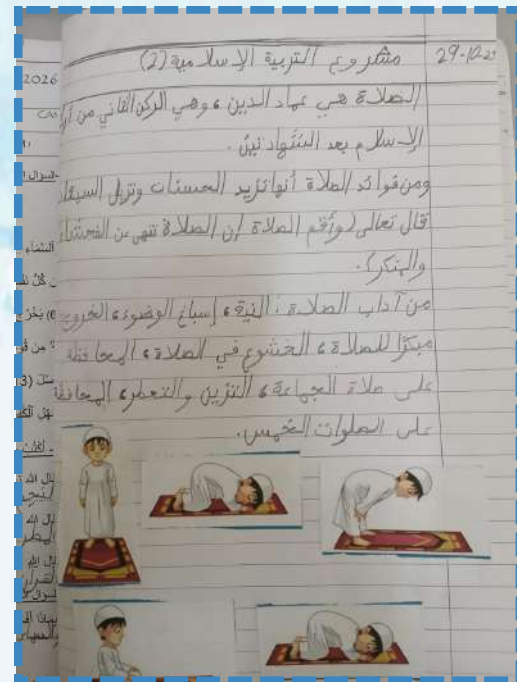 29-10-25
مشروع التربية الإسلامية (2)
الصلاة هي عماد الدين، وهي الركن الثاني من
الإسلام بعد الشهادتين.
ومن فوائد الصلاة أنها تزيد الحسنات وتزيل السيئات
قال تعالى (وأقم الصلاة إن الصلاة تنهى عن الفحشاء
والمنكر).
من آداب الصلاة: النية، إسباغ الوضوء، الخروج
مبكرًا للصلاة، الخشوع في الصلاة، المحافظة
على صلاة الجماعة، التزين والتعطر، المحافظة
على الصلوات الخمس.
2026